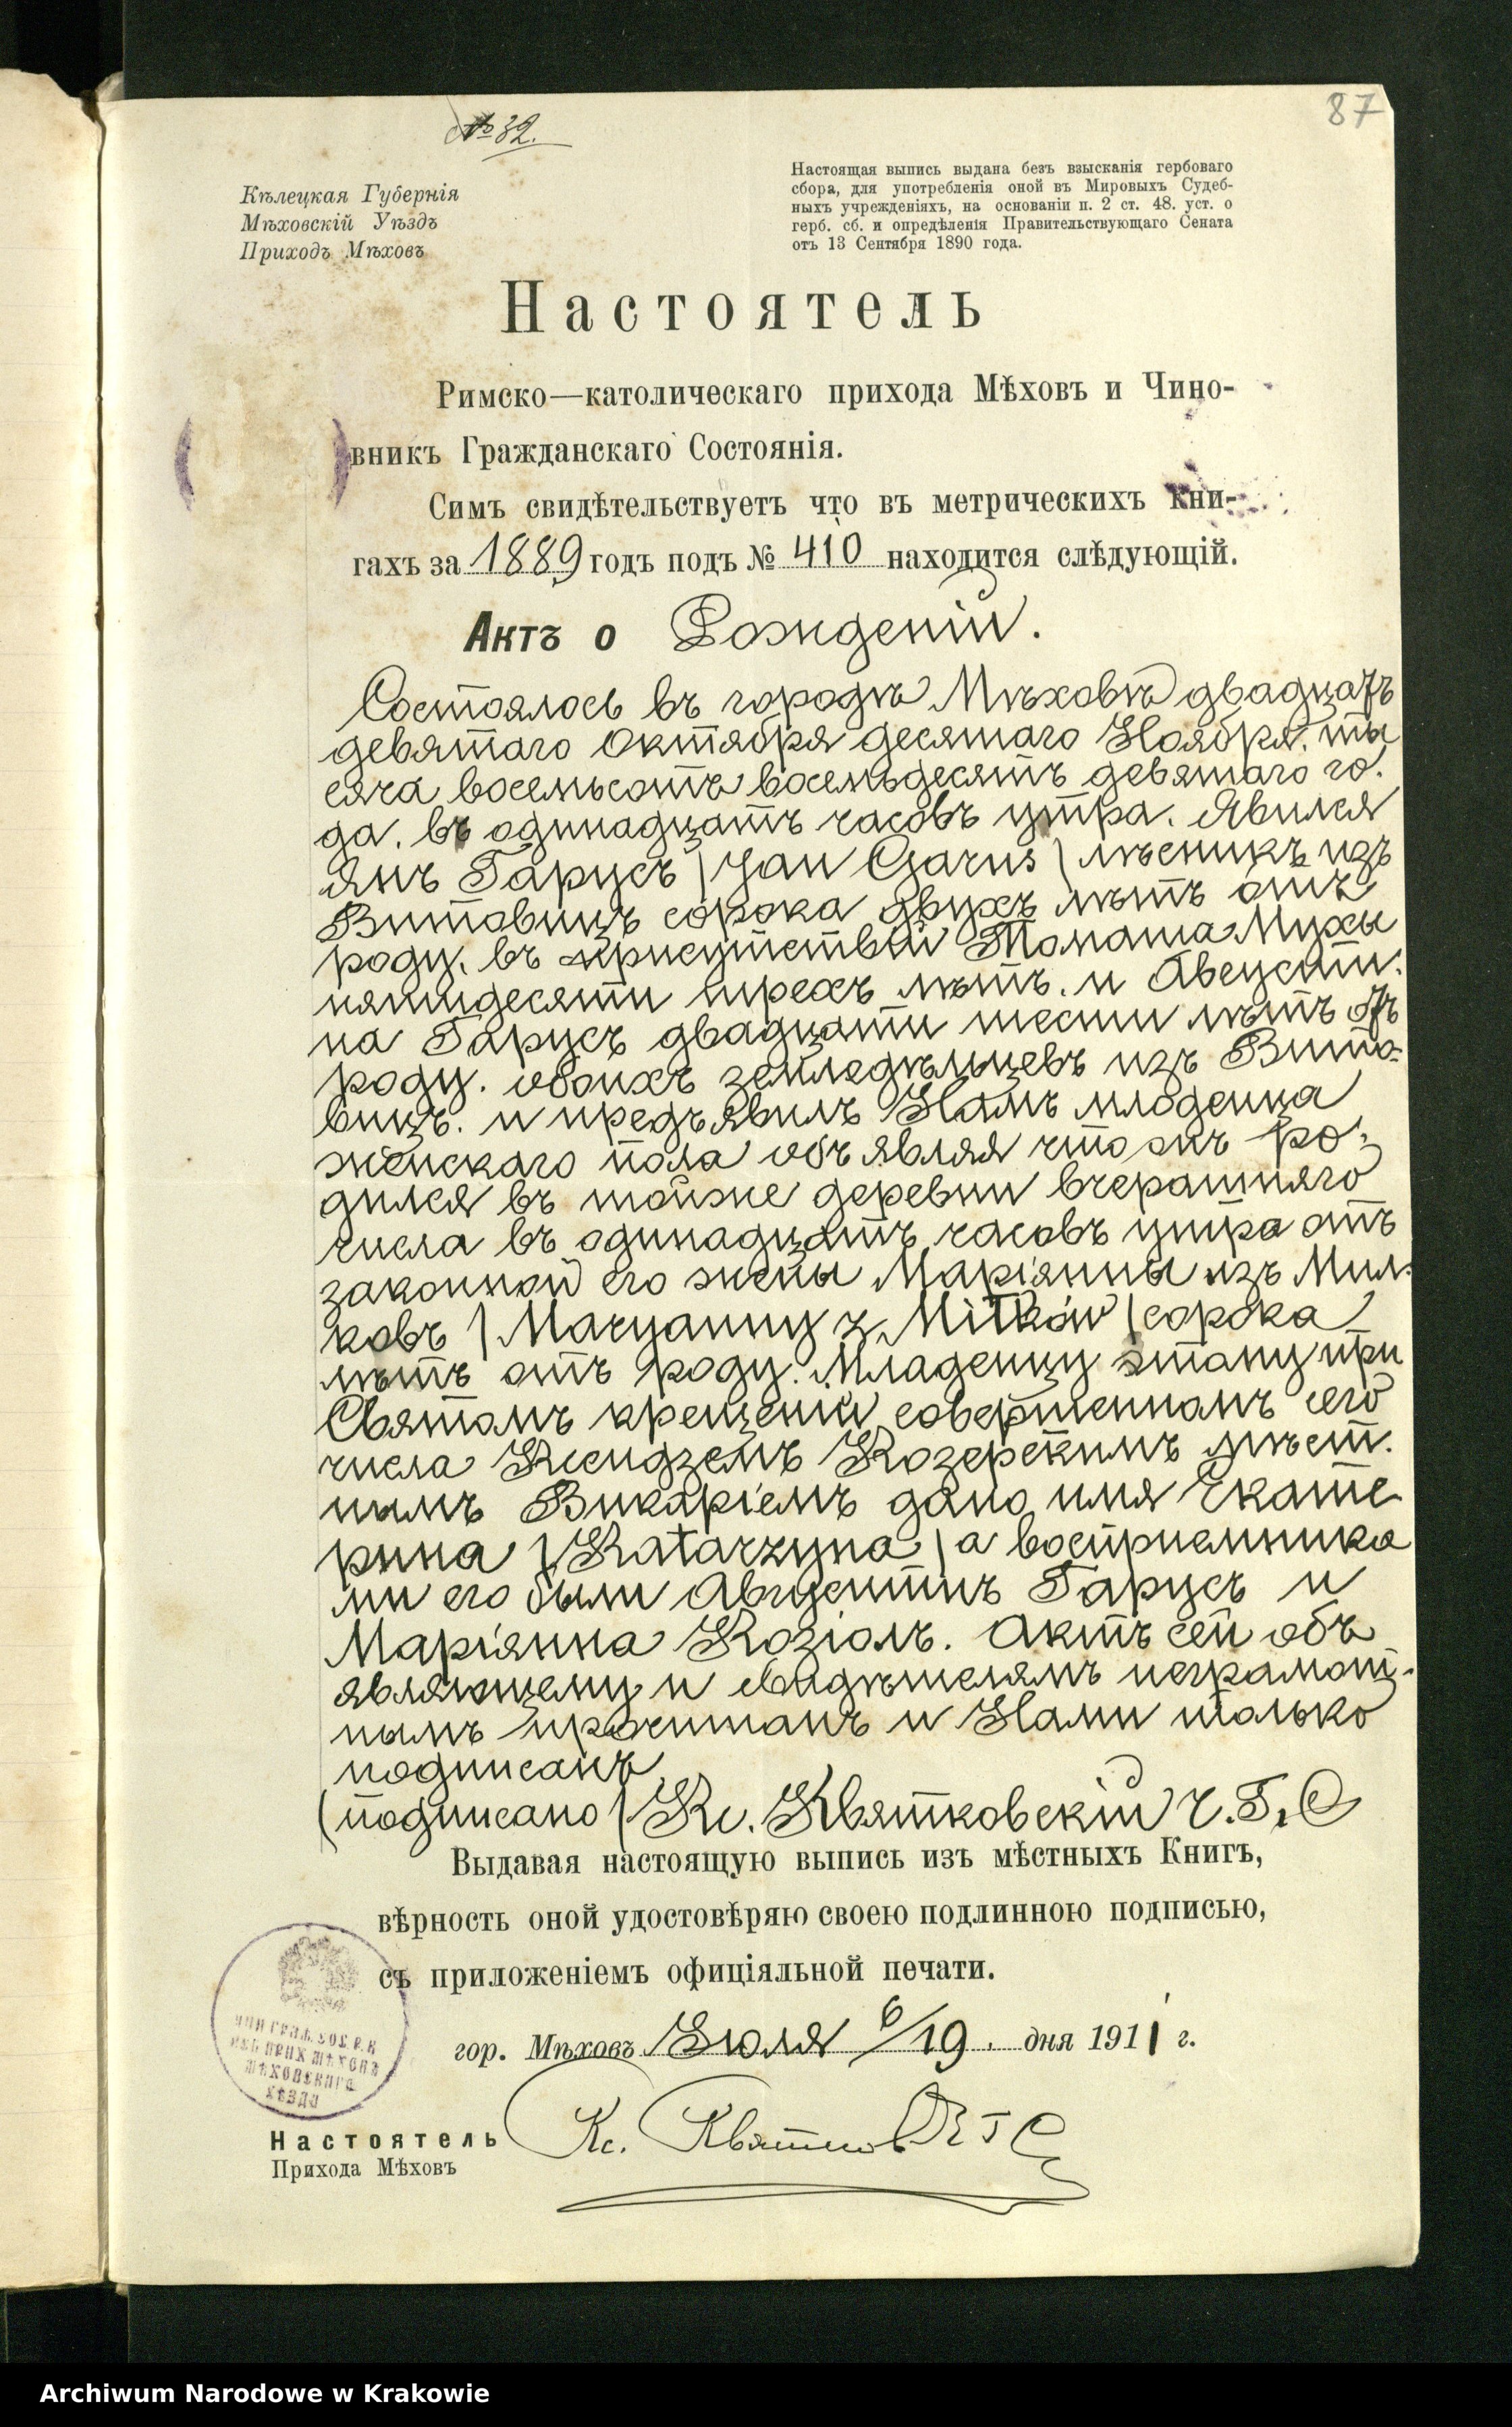 № 32.
87
Кѣлецкая Губернія
Мѣховскій Уѣздъ
Приходъ Мѣховъ
Настоящая выпись выдана безъ взысканія гербоваго
сбора, для употребленія оной въ Мировыхъ Судеб-
ныхъ учрежденіяхъ, на основаніи п. 2 ст. 48. уст. о
герб. сб. и опредѣленія Правительствующаго Сената
отъ 13 Сентября 1890 года.
Настоятель
Римско—католическаго прихода Мѣховъ и Чино-
вникъ Гражданскаго Состоянія.
Симъ свидѣтельствуетъ что въ метрическихъ кни-
гахъ за 1889 годъ подъ № 410 находится слѣдующій.
Актъ о Рожденіи.
Состоялось въ городѣ Мѣховѣ двадцать
девятаго Октября десятаго Ноября, ты
сяча восемьсотъ восемьдесятъ девятаго го-
да. въ одинадцать часовъ утра. Явился
Янъ Гарусъ (Jan Garus) лѣсникъ изъ
Витовицъ сорока двухъ лѣтъ отъ
роду, въ присутствіи Томаша Мухы
пятидесяти трехъ лѣтъ. и Августи-
на Гарусъ двадцати шести лѣтъ отъ
роду. обоихъ земледѣльцевъ изъ Вито-
вицъ. и предъявилъ Намъ младенца
женскаго пола объявляя что онъ ро-
дился въ тойже деревни вчерашняго
числа въ одинадцать часовъ утра отъ
законной его жены Маріянны изъ Мил-
ковъ (Maryanny z Miłków) сорока
лѣтъ отъ роду. Младенцу этому при
Святомъ крещеніи совершенномъ сего
числа Ксендземъ Козерскимъ мѣст-
нымъ Викаріемъ дано имя Екате
рина (Katarzyna) а воспріемника
ми его были Августинъ Гарусъ и
Маріянна Козіолъ. Актъ сей объ
являющему и свидѣтелямъ неграмот-
нымъ прочитанъ и Нами только
подписанъ
(подписано) Кс. Квятковскій Ч. Г. С
Выдавая настоящую выпись изъ мѣстныхъ Книгъ,
вѣрность оной удостовѣряю своею подлинною подписью,
съ приложеніемъ офиціяльной печати.
гор. Мѣховъ Іюля 6/19. дня 1911 г.
Настоятель
Прихода Мѣховъ
Кс. Квятков
Archiwum Narodowe w Krakowie